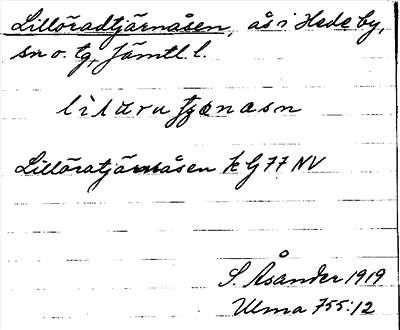 Lillöradtjärnåsen, ås i Hede by,
sn o. tg, Jämtl. l.
Lillöratjärnåsen k G 77 NV
S. Åsander 1919
Ulma 755:12